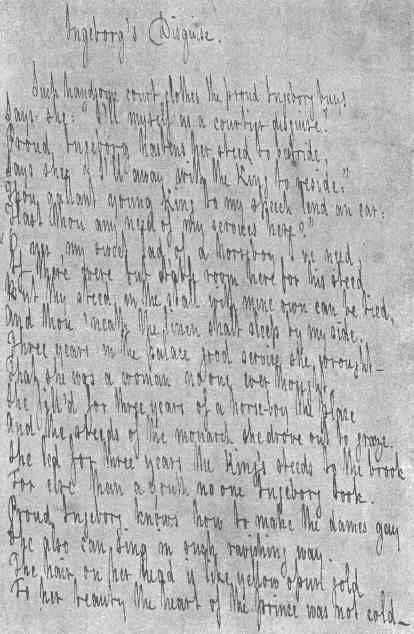 Ingeborg's Disguise.
Such handsome court clothes the proud Ingeborg buys,
Says she: "I'll myself as a courtier disguise."
Proud Ingeborg hastens her steed to bestride,
Says she: "I'll away with the King to reside:"
"Thou gallant young King to my speech lend an ear:
Hast thou any need of my services here?"
"O yes, my sweet lad; of a horseboy I've need,
If there were but stable room here for his steed.
But thy steed in the stall with mine own can be tied,
And thou 'neath the linen shalt sleep by my side."
Three years in the palace good service she wrought—
That she was a woman no one ever thought,
She fill'd for three years of a horseboy the place
And the steeds of the monarch she drove out to graze.
She led for three years the King's steeds to the brook
For else than a youth no one Ingeborg took.
Proud Ingeborg knows how to make the dames gay
She also can sing in such ravishing way.
The hair on her head is like yellow spun gold
To her beauty the heart of the prince was not cold—